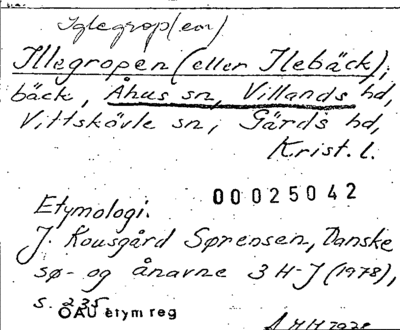 Iglegrop(en)
Illegropen (eller Ilebäck),
bäck, Åhus sn, Villands hd,
Vittskövle sn, Gärds hd,
Krist. l.
00025042
Etymologi.
J. Kousgård Sørensen, Danske
sø- og ånavne 3 H-J (1978),
s. 235
OAU etym reg